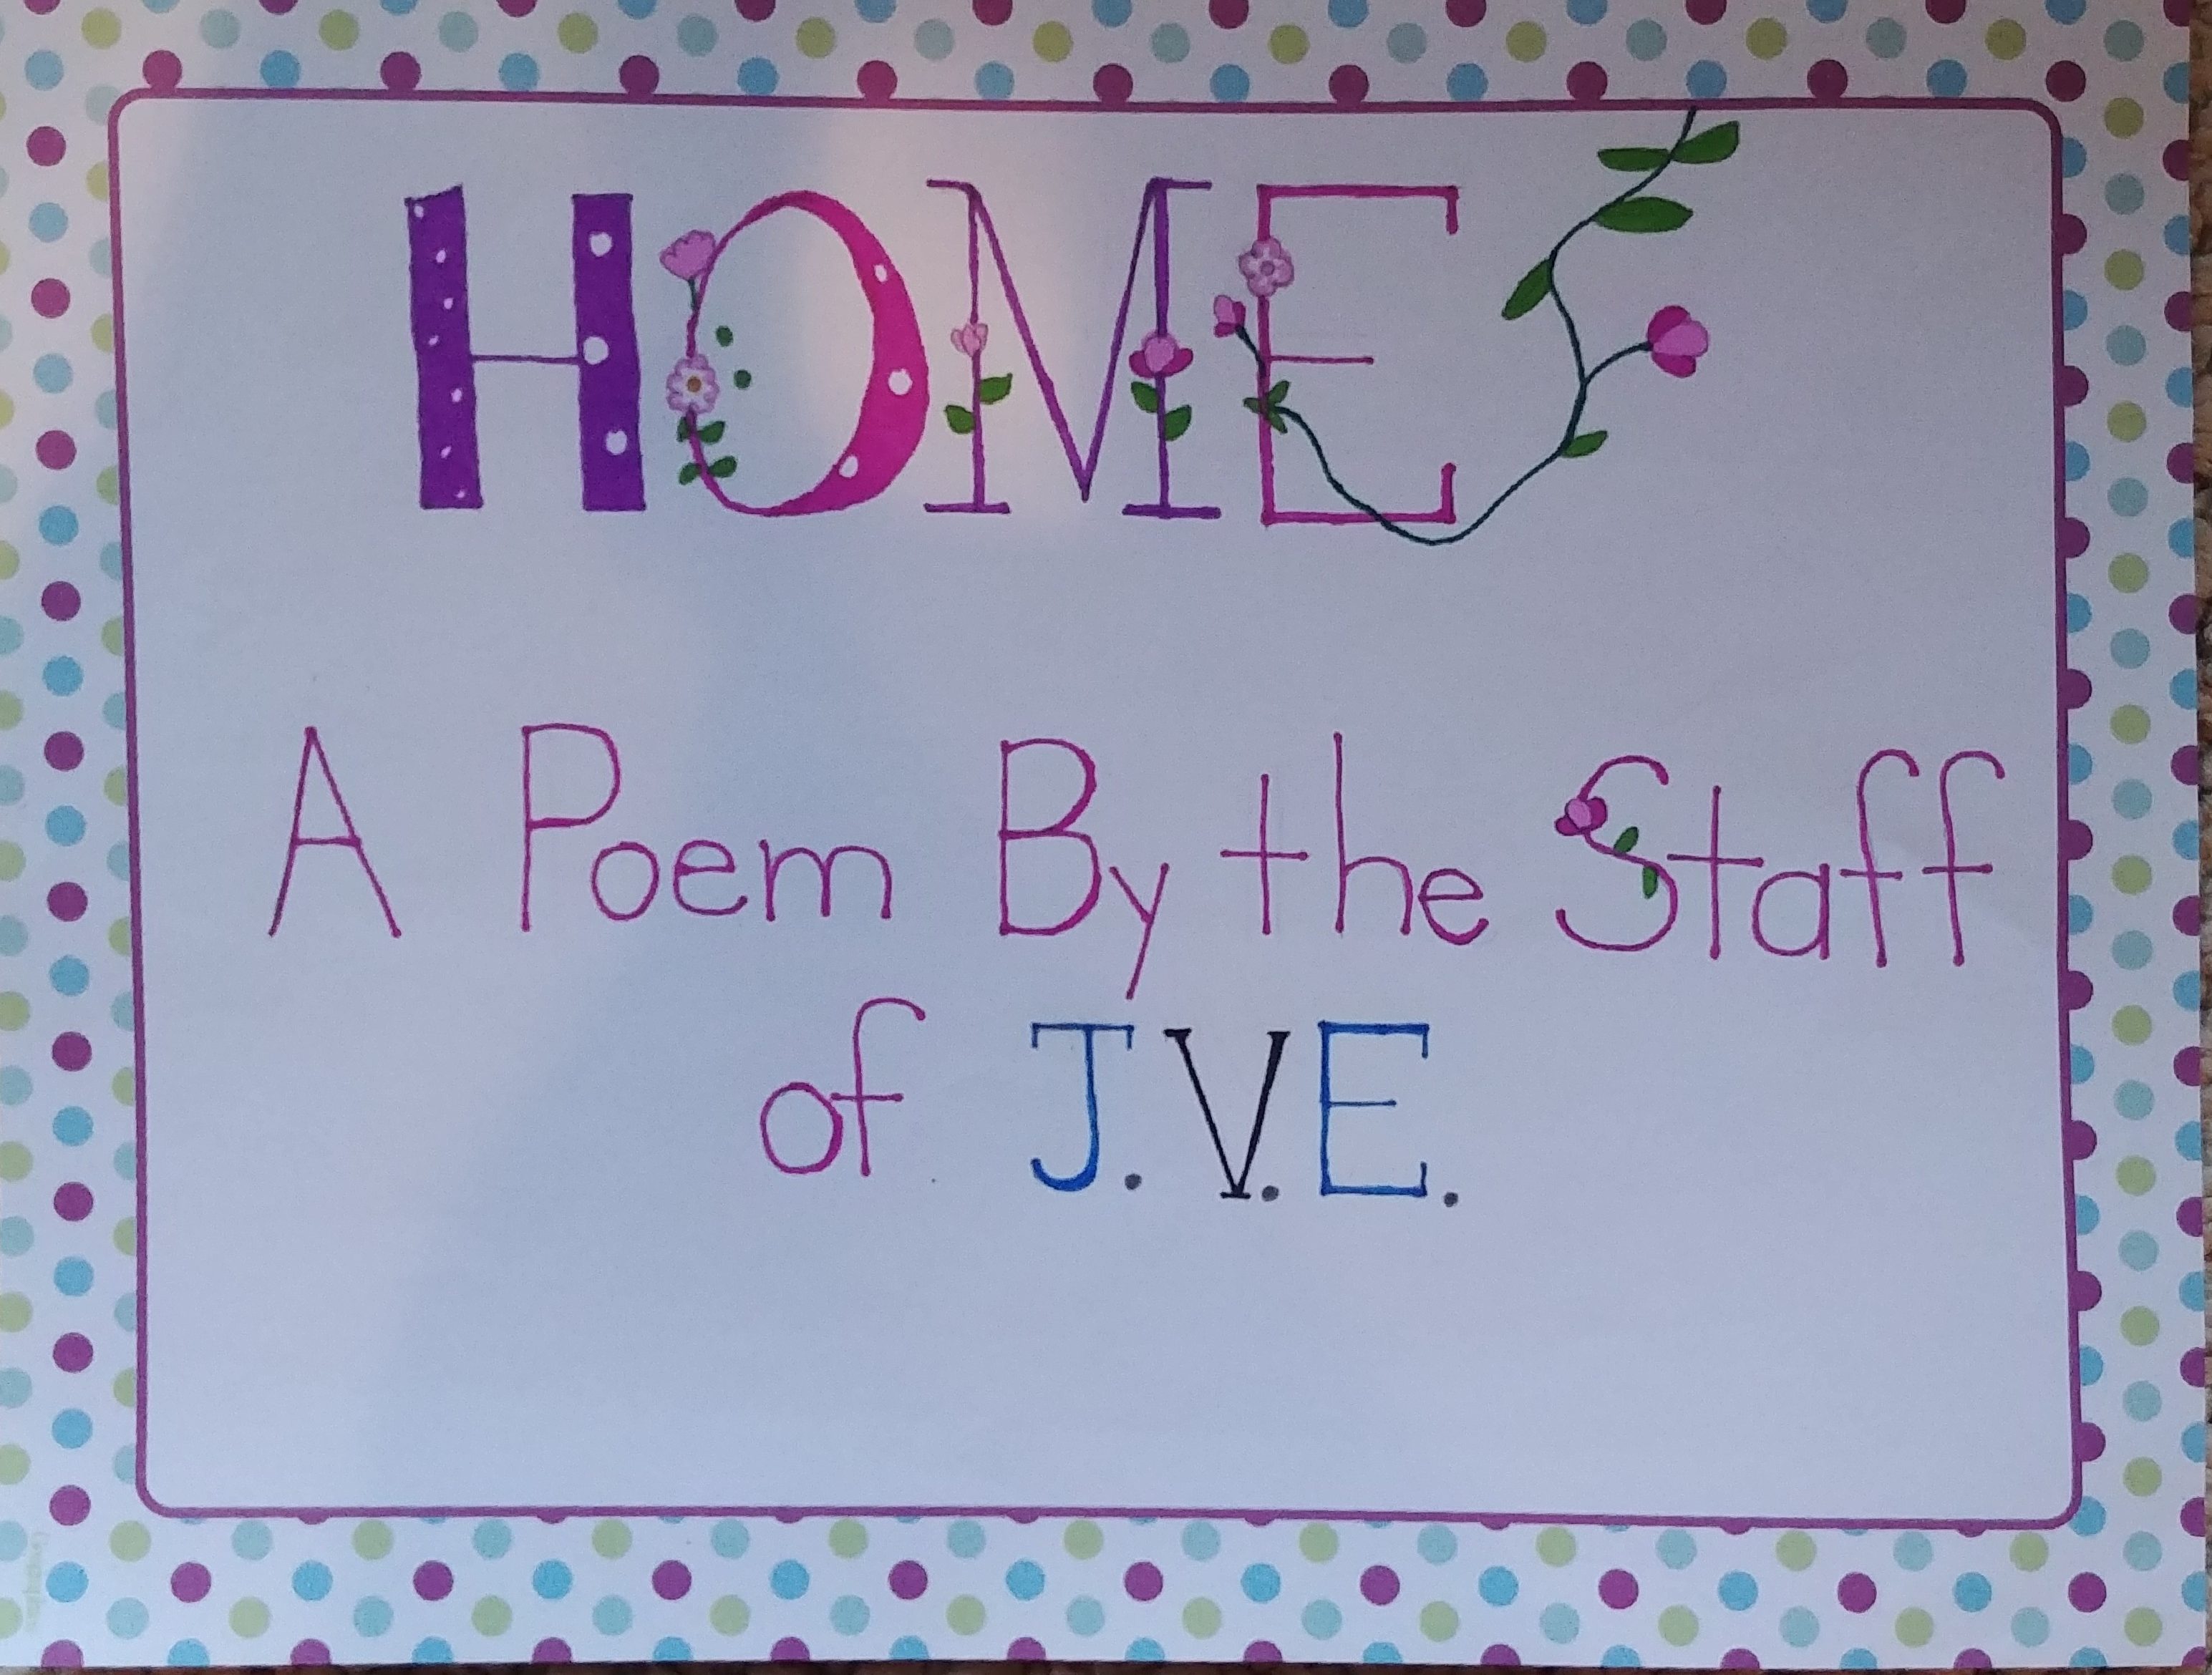 HOME
A Poem By the Staff
of J.V.E.